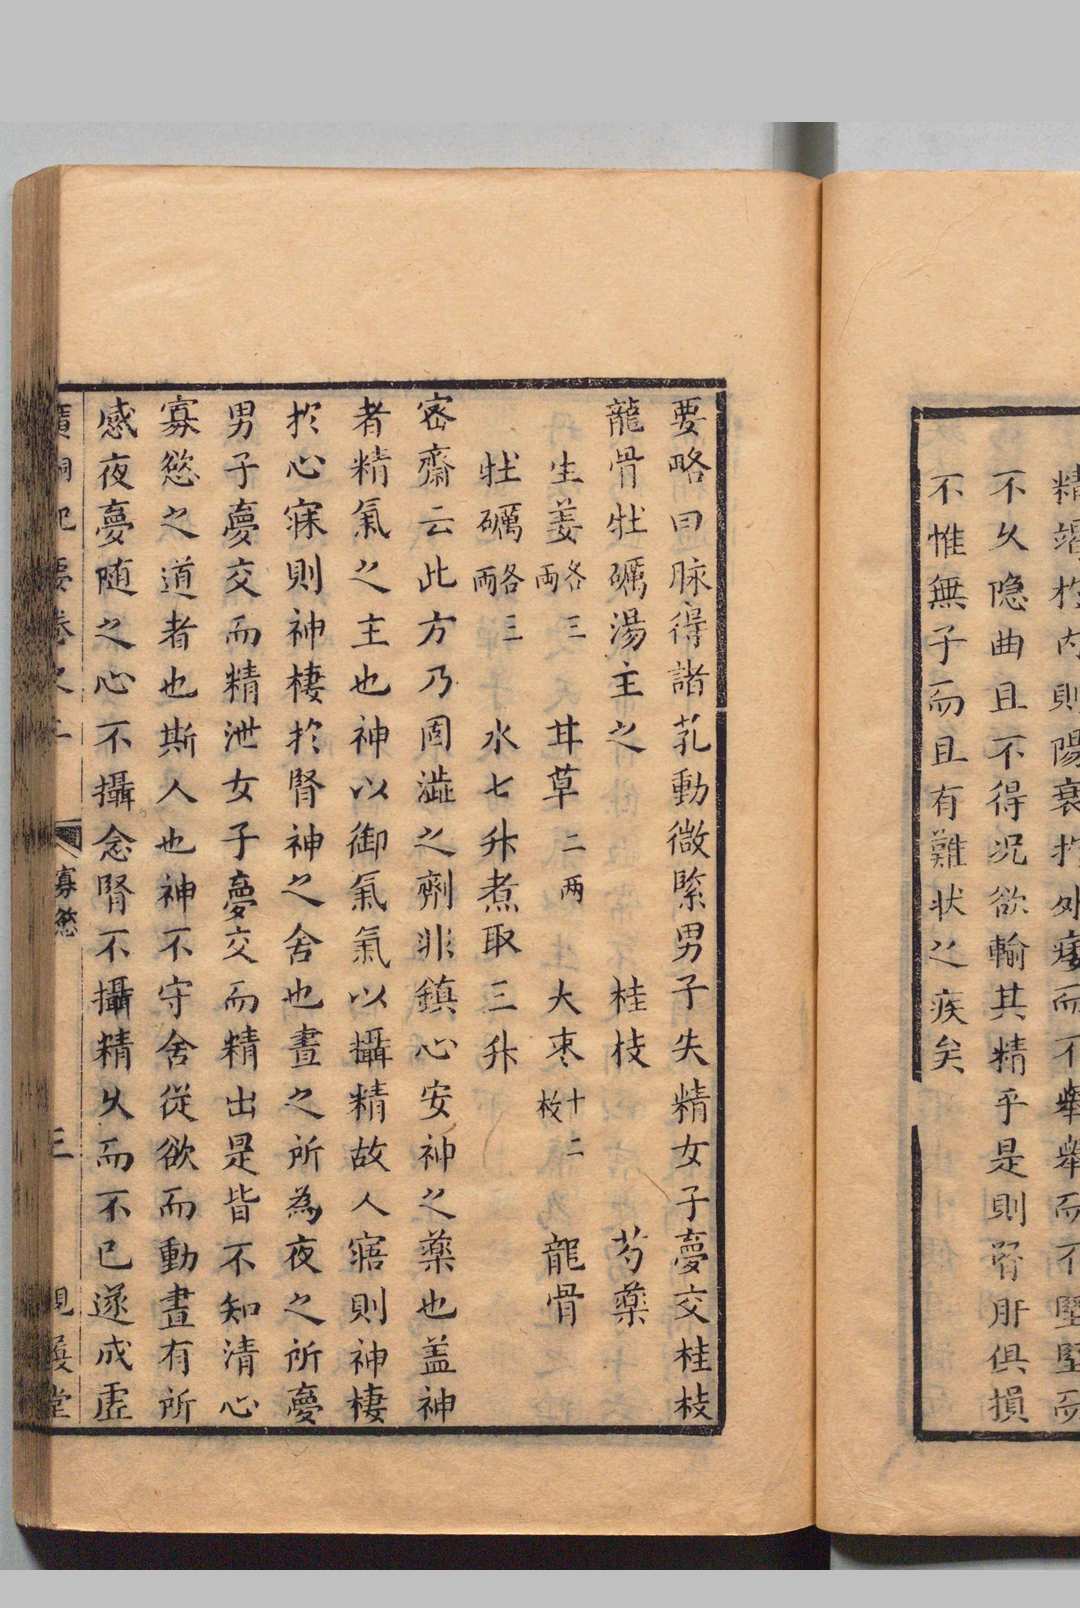 精竭於内則陽衰於外痿而不舉舉而不堅堅而
不久隐曲且不得况欲輸其精乎是則腎肝俱損
不惟無子而且有難状之疾矣
要略曰脉得諸芤動微緊男子失精女子夢交桂枝
龍骨牡礪湯主之　桂枝　芍藥
生姜各三兩　甘草二两　大枣十二枚　龍骨
牡礪各三兩　水七升煮取三升
密齋云此方乃固澁之劑非鎮心安神之藥也盖神
者精氣之主也神以御氣氣以攝精故人寤則神棲
扵心寐則神棲扵腎神之舍也晝之所為夜之所夢
男子夢交而精泄女子夢交而精出是皆不知清心
寡慾之道者也斯人也神不守舍從欲而動晝有所
感夜夢随之心不攝念腎不攝精久而不已遂成虛
廣嗣紀要卷之二　寡慾　三　視履堂